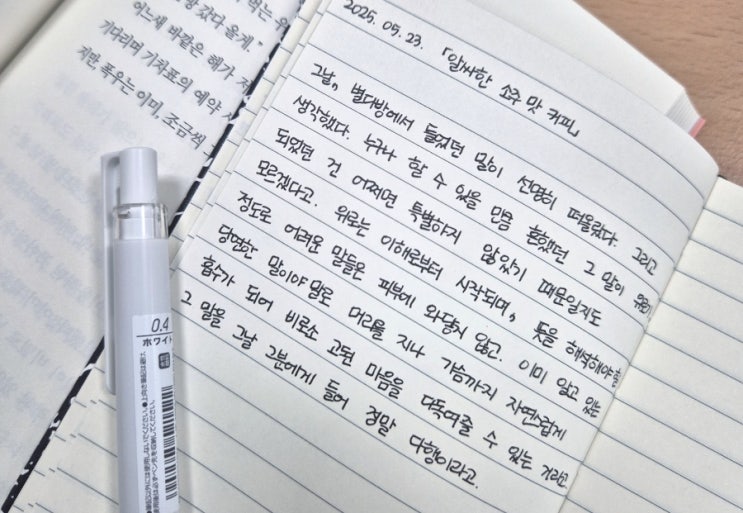 먹는 우
항 갔다 올게."
어느새 바깥은 해가 저
기다리며 기차표의 예약
지만, 폭우는 이미, 조금씩
2025. 05. 23. 「알싸한 소주 맛 커피」
그날, 별다방에서 들었던 말이 선명히 떠올랐다. 그리고
생각했다. 누구나 할 수 있을 만큼 흔했던 그 말이 위로가
되었던 건 어쩌면 특별하지 않았기 때문일지도
모르겠다고. 위로는 이해로부터 시작되며, 뜻을 해석해야 할
정도로 어려운 말들은 피부에 와닿지 않고. 이미 알고 있는
당연한 말이야 말로 머리를 지나 가슴까지 자연스럽게
흡수가 되어 비로소 고된 마음을 다독여줄 수 있는 거라고.
그 말을 그날 그분에게 들어 정말 다행이라고.
0.4
ホワイト
●上向き筆記は避け
筆記以外には使用しないでください。
使用後は必ずペン先を収納してください。